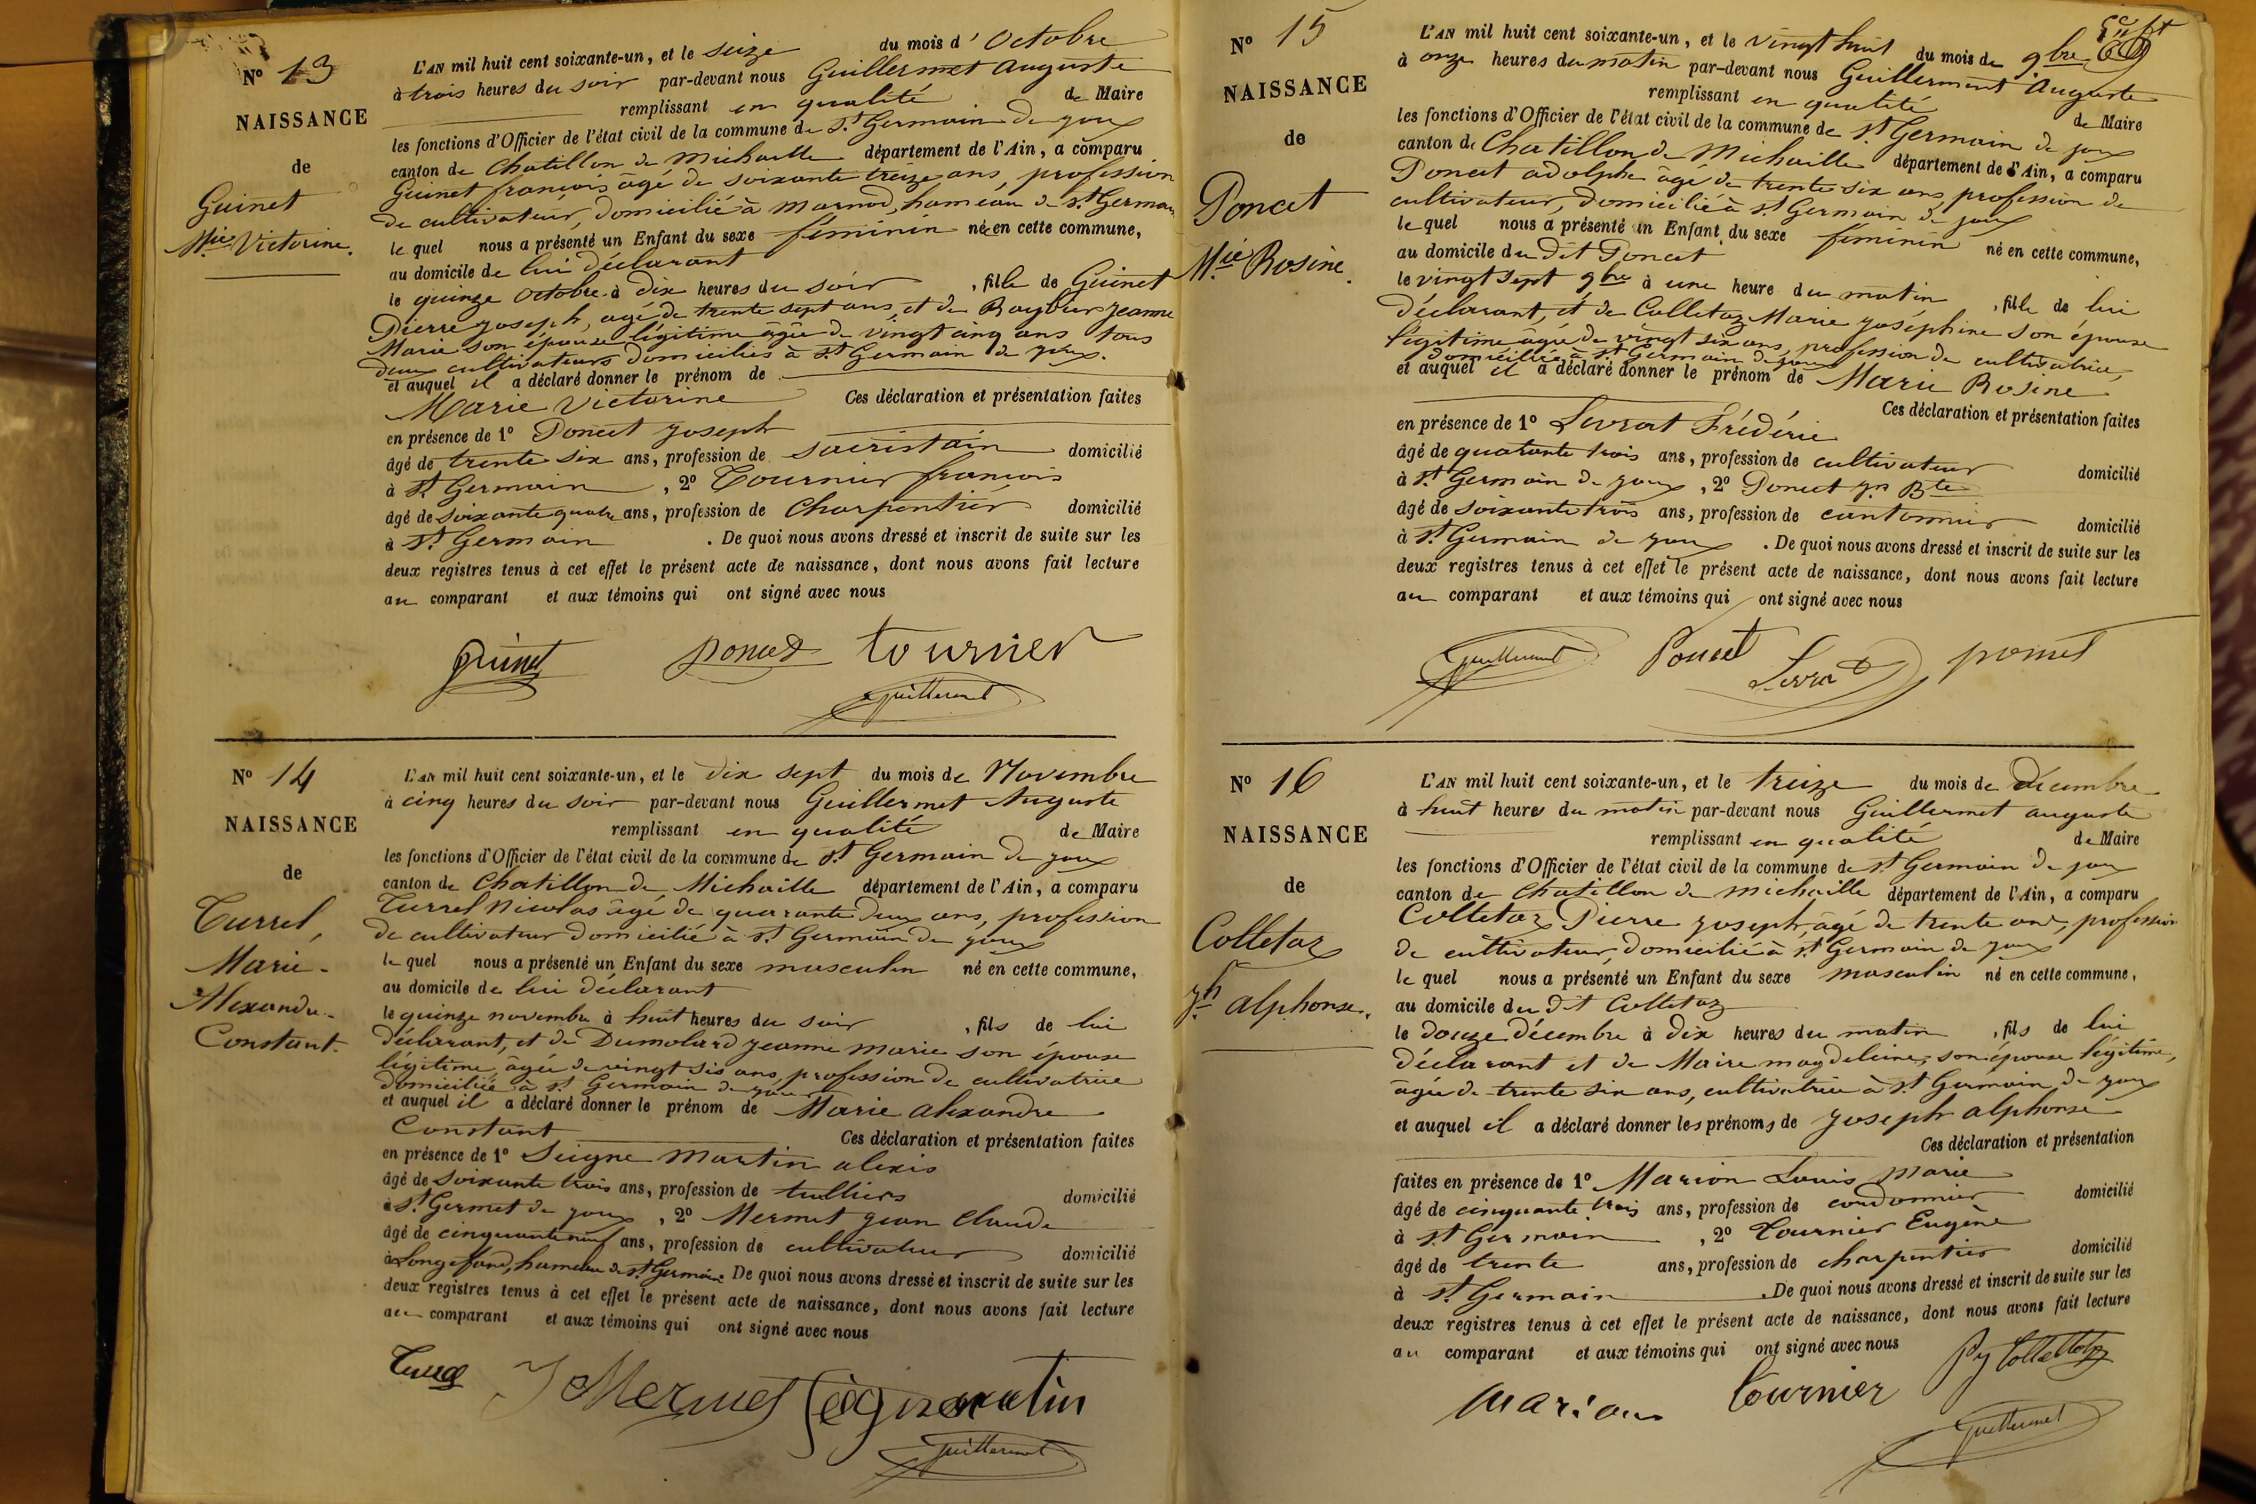 N° 13
NAISSANCE
de
Guinet
Mie Victorine.
L'AN mil huit cent soixante-un, et le seize du mois d'Octobre
à trois heures du soir par-devant nous Guillermet Auguste
remplissant en qualité de Maire
les fonctions d'Officier de l'état civil de la commune de St Germain de joux
canton de Chatillon de Michaille département de l'Ain, a comparu
Guinet françois âgé de soixante treize ans, profession
de cultivateur, domicilié à marnod, hameau de St Germain
le quel nous a présenté un Enfant du sexe féminin née en cette commune,
au domicile de lui déclarant
le quinze Octobre à dix heures du soir, fille de Guinet
Pierre joseph, agé de trente sept ans, et de jeanne
Marie son épouse légitime âgée de vingt cinq ans tous
deux cultivateurs domiciliés à St Germain de joux.
et auquel il a déclaré donner le prénom de
Marie Victorine Ces déclaration et présentation faites
en présence de 1° Poncet joseph
âgé de trente six ans, profession de sacristain domicilié
à St Germain, 2° Tournier françois
âgé de soixante quatre ans, profession de Charpentier domicilié
à St Germain. De quoi nous avons dressé et inscrit de suite sur les
deux registres tenus à cet effet le présent acte de naissance, dont nous avons fait lecture
au comparant et aux témoins qui ont signé avec nous
guinet poncet tournier
guillermet
N° 14
NAISSANCE
de
Turrel,
Marie-
Alexandre-
Constant.
L'AN mil huit cent soixante-un, et le dix sept du mois de Novembre
à cinq heures du soir par-devant nous Guillermet Auguste
remplissant en qualité de Maire
les fonctions d'Officier de l'état civil de la commune de St Germain de joux
canton de Chatillon de Michaille département de l'Ain, a comparu
Turrel Nicolas âgé de quarante deux ans, profession
de cultivateur domicilié à St Germain de joux
le quel nous a présenté un Enfant du sexe masculin né en cette commune,
au domicile de lui déclarant
le quinze novembre à huit heures du soir, fils de lui
déclarant, et de Dumolard jeanne marie son épouse
légitime, âgée de vingt six ans, profession de cultivatrice
domiciliée à St Germain de joux
et auquel il a déclaré donner le prénom de Marie alexandre
Constant Ces déclaration et présentation faites
en présence de 1° Seigne martin alexis
âgé de soixante trois ans, profession de domicilié
à St Germet de joux, 2° Mermet jean Claude
âgé de cinquante neuf ans, profession de cultivateur domicilié
à Longefand, hameau de St Germain. De quoi nous avons dressé et inscrit de suite sur les
deux registres tenus à cet effet le présent acte de naissance, dont nous avons fait lecture
au comparant et aux témoins qui ont signé avec nous
J Mermet Seignemartin
guillermet
N° 15
NAISSANCE
de
Poncet
Mie Rosine.
L'AN mil huit cent soixante-un, et le vingt huit du mois de 9bre
à onze heures du matin par-devant nous Guillermet Auguste
remplissant en qualité de Maire
les fonctions d'Officier de l'état civil de la commune de St Germain de joux
canton de Chatillon de Michaille département de l'Ain, a comparu
Poncet adolphe âgé de trente six ans, profession de
cultivateur, domicilié à St Germain de joux
le quel nous a présenté un Enfant du sexe féminin né en cette commune,
au domicile du dit Poncet
le vingt sept 9bre à une heure du matin, fille de lui
déclarant, et de Colletaz Marie joséphine son épouse
légitime âgée de vingt six ans, profession de cultivatrice,
domiciliée à St Germain de joux
et auquel il a déclaré donner le prénom de Marie Rosine
Ces déclaration et présentation faites
en présence de 1° Levrat Frédéric
âgé de quarante trois ans, profession de cultivateur domicilié
à St Germain de joux, 2° Poncet jn Bte
âgé de soixante trois ans, profession de cantonnier domicilié
à St Germain de joux. De quoi nous avons dressé et inscrit de suite sur les
deux registres tenus à cet effet le présent acte de naissance, dont nous avons fait lecture
au comparant et aux témoins qui ont signé avec nous
guillermet Poncet Levrat poncet
N° 16
NAISSANCE
de
Colletaz
jh alphonse.
L'AN mil huit cent soixante-un, et le treize du mois de décembre
à huit heures du matin par-devant nous Guillermet auguste
remplissant en qualité de Maire
les fonctions d'Officier de l'état civil de la commune de St Germain de joux
canton de Chatillon de michaille département de l'Ain, a comparu
Colletaz Pierre joseph, âgé de trente ans, profession
de cultivateur, domicilié à St Germain de joux
le quel nous a présenté un Enfant du sexe masculin né en cette commune,
au domicile du dit Colletaz
le douze décembre à dix heures du matin, fils de lui
déclarant et de Maire magdeleine, son épouse légitime,
âgée de trente six ans, cultivatrice à St Germain de joux
et auquel il a déclaré donner les prénoms de joseph alphonse
Ces déclaration et présentation
faites en présence de 1° Marion Louis marie
âgé de cinquante trois ans, profession de cordonnier domicilié
à St Germain, 2° Tournier Eugène
âgé de trente ans, profession de charpentier domicilié
à St Germain. De quoi nous avons dressé et inscrit de suite sur les
deux registres tenus à cet effet le présent acte de naissance, dont nous avons fait lecture
au comparant et aux témoins qui ont signé avec nous
Pj Collettaz
marion tournier
guillermet